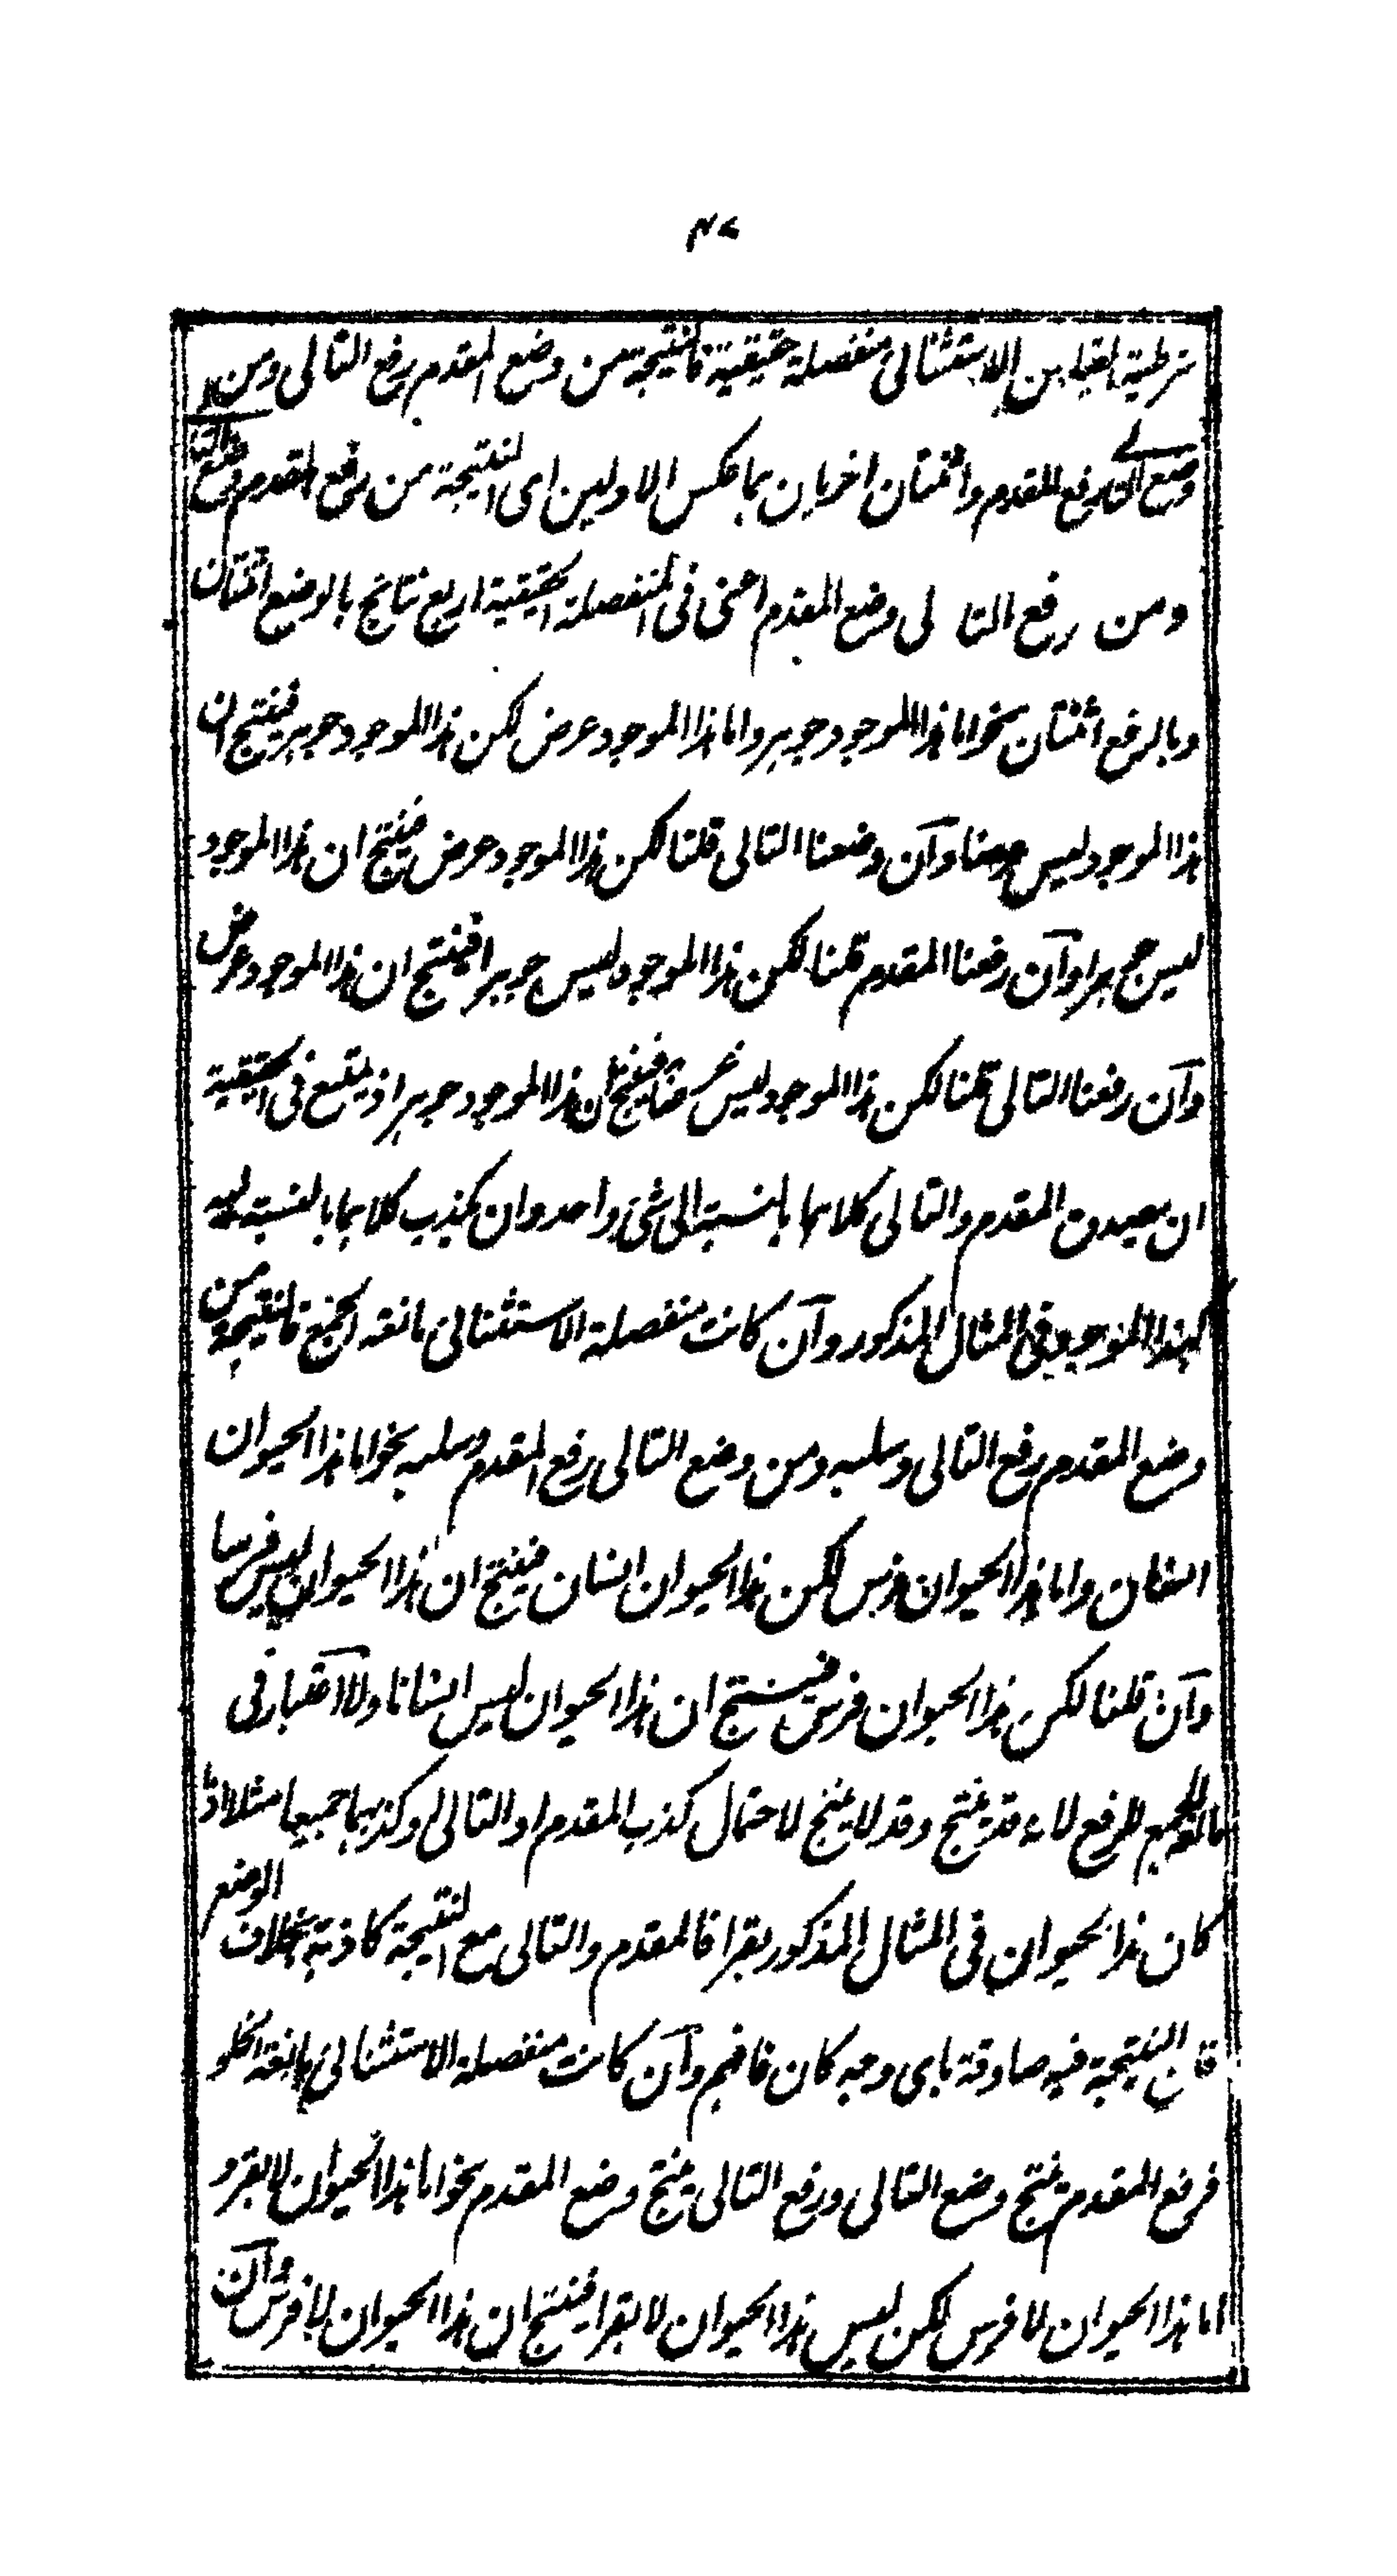 ٤٧
شرطية القياس الاستثنائى منفصلة حقيقية فالنتيجة من وضع المقدم رفع التالى ومن
وضع التالى رفع المقدم واثنتان اخريان بما عكس الاولين اى النتيجة من رفع المقدم وضع التا
ومن رفع التا لى وضع المقدم اعنى فى المنفصلة الحقيقية اربع نتائج بالوضع اثنتان
وبالرفع اثنتان نحو اما هذا الموجود جوهر واما هذا الموجود عرض لكن هذا الموجود جوهر فينتج ان
هذا الموجود ليس عرضا وآن وضعنا التالى قلنا لكن هذا الموجود عرض فينتج ان هذا الموجود
ليس جوهرا وآن رفعنا المقدم قلنا لكن هذا الموجود ليس جوهرا فينتج ان هذا الموجود عرض
وآن رفعنا التالى قلنا لكن هذا الموجود ليس عرضا فينتج ان هذا الموجود جوهر اذ يمتنع فى الحقيقية
ان يصدق المقدم والتالى كلاهما بالنسبة الى شئ واحد وان يكذب كلاهما بالنسبة اليه
كهذا الموجود فى المثال المذكور وآن كانت منفصلة الاستثنائى مانعة الجمع فالنتيجة من
وضع المقدم رفع التالى وسلبه ومن وضع التالى رفع المقدم وسلبه نحو اما هذا الحيوان
انسان واما هذا الحيوان فرس لكن هذا الحيوان انسان فينتج ان هذا الحيوان ليس فرسا
وآن قلنا لكن هذا الحيوان فرس فينتج ان هذا الحيوان ليس انسانا ولا اعتبار فى
مانعة الجمع للرفع لانه قد ينتج وقد لا ينتج لاحتمال كذب المقدم او التالى وكذبهما جميعا مثلا اذا
كان هذا الحيوان فى المثال المذكور بقرا فالمقدم والتالى مع النتيجة كاذبة بخلاف الوضع
فان النتيجة فيه صادقة باى وجه كان فافهم وآن كانت منفصلة الاستثنائى مانعة الخلو
فرفع المقدم ينتج وضع التالى ورفع التالى ينتج وضع المقدم نحو اما هذا الحيوان لا بقر و
اما هذا الحيوان لا فرس لكن ليس هذا الحيوان لا بقرا فينتج ان هذا الحيوان لا فرس وآن